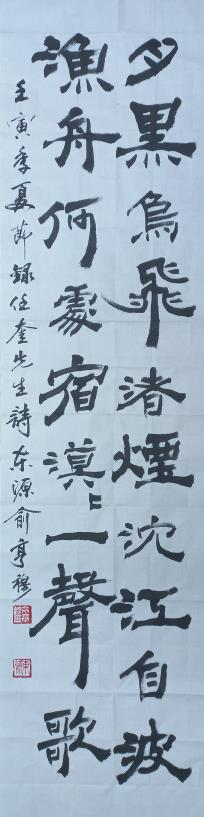 夕黑烏飛渚煙沈江自波
漁舟何處宿漠〻一聲歌
壬寅季夏節録任奎先生詩東源俞亨穆